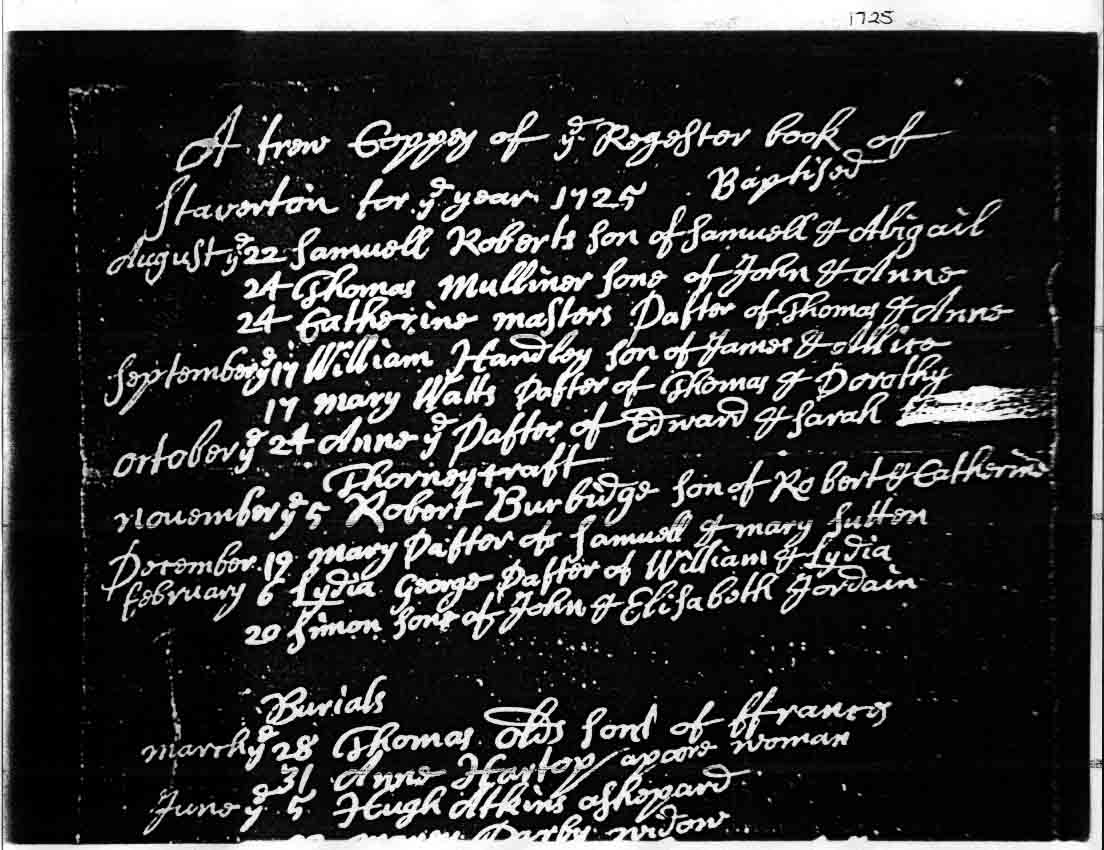 1725
A trew Coppey of ye Regester book of
Staverton for ye year 1725 Baptised
August ye 22 Samuell Roberts son of Samuell & Abigail
24 Thomas Mulliner sone of John & Anne
24 Catherine masters Dafter of Thomas & Anne
September ye 17 William Handley son of James & Allice
17 mary Watts Dafter of Thomas & Dorothy
october ye 24 Anne ye Dafter of Edward & Sarah
Thorneycraft
november ye 5 Robert Burbidge son of Robert & Catherine
December 19 mary Dafter of Samuell & mary sutten
february 6 Lydia George Dafter of William & Lydia
20 Simon sone of John & Elisabeth Jordain
Burials
march ye 28 Thomas Olds sone of ffrances
31 Anne Hartop a poore woman
June ye 5 Hugh Atkins a shepard
Darby widow